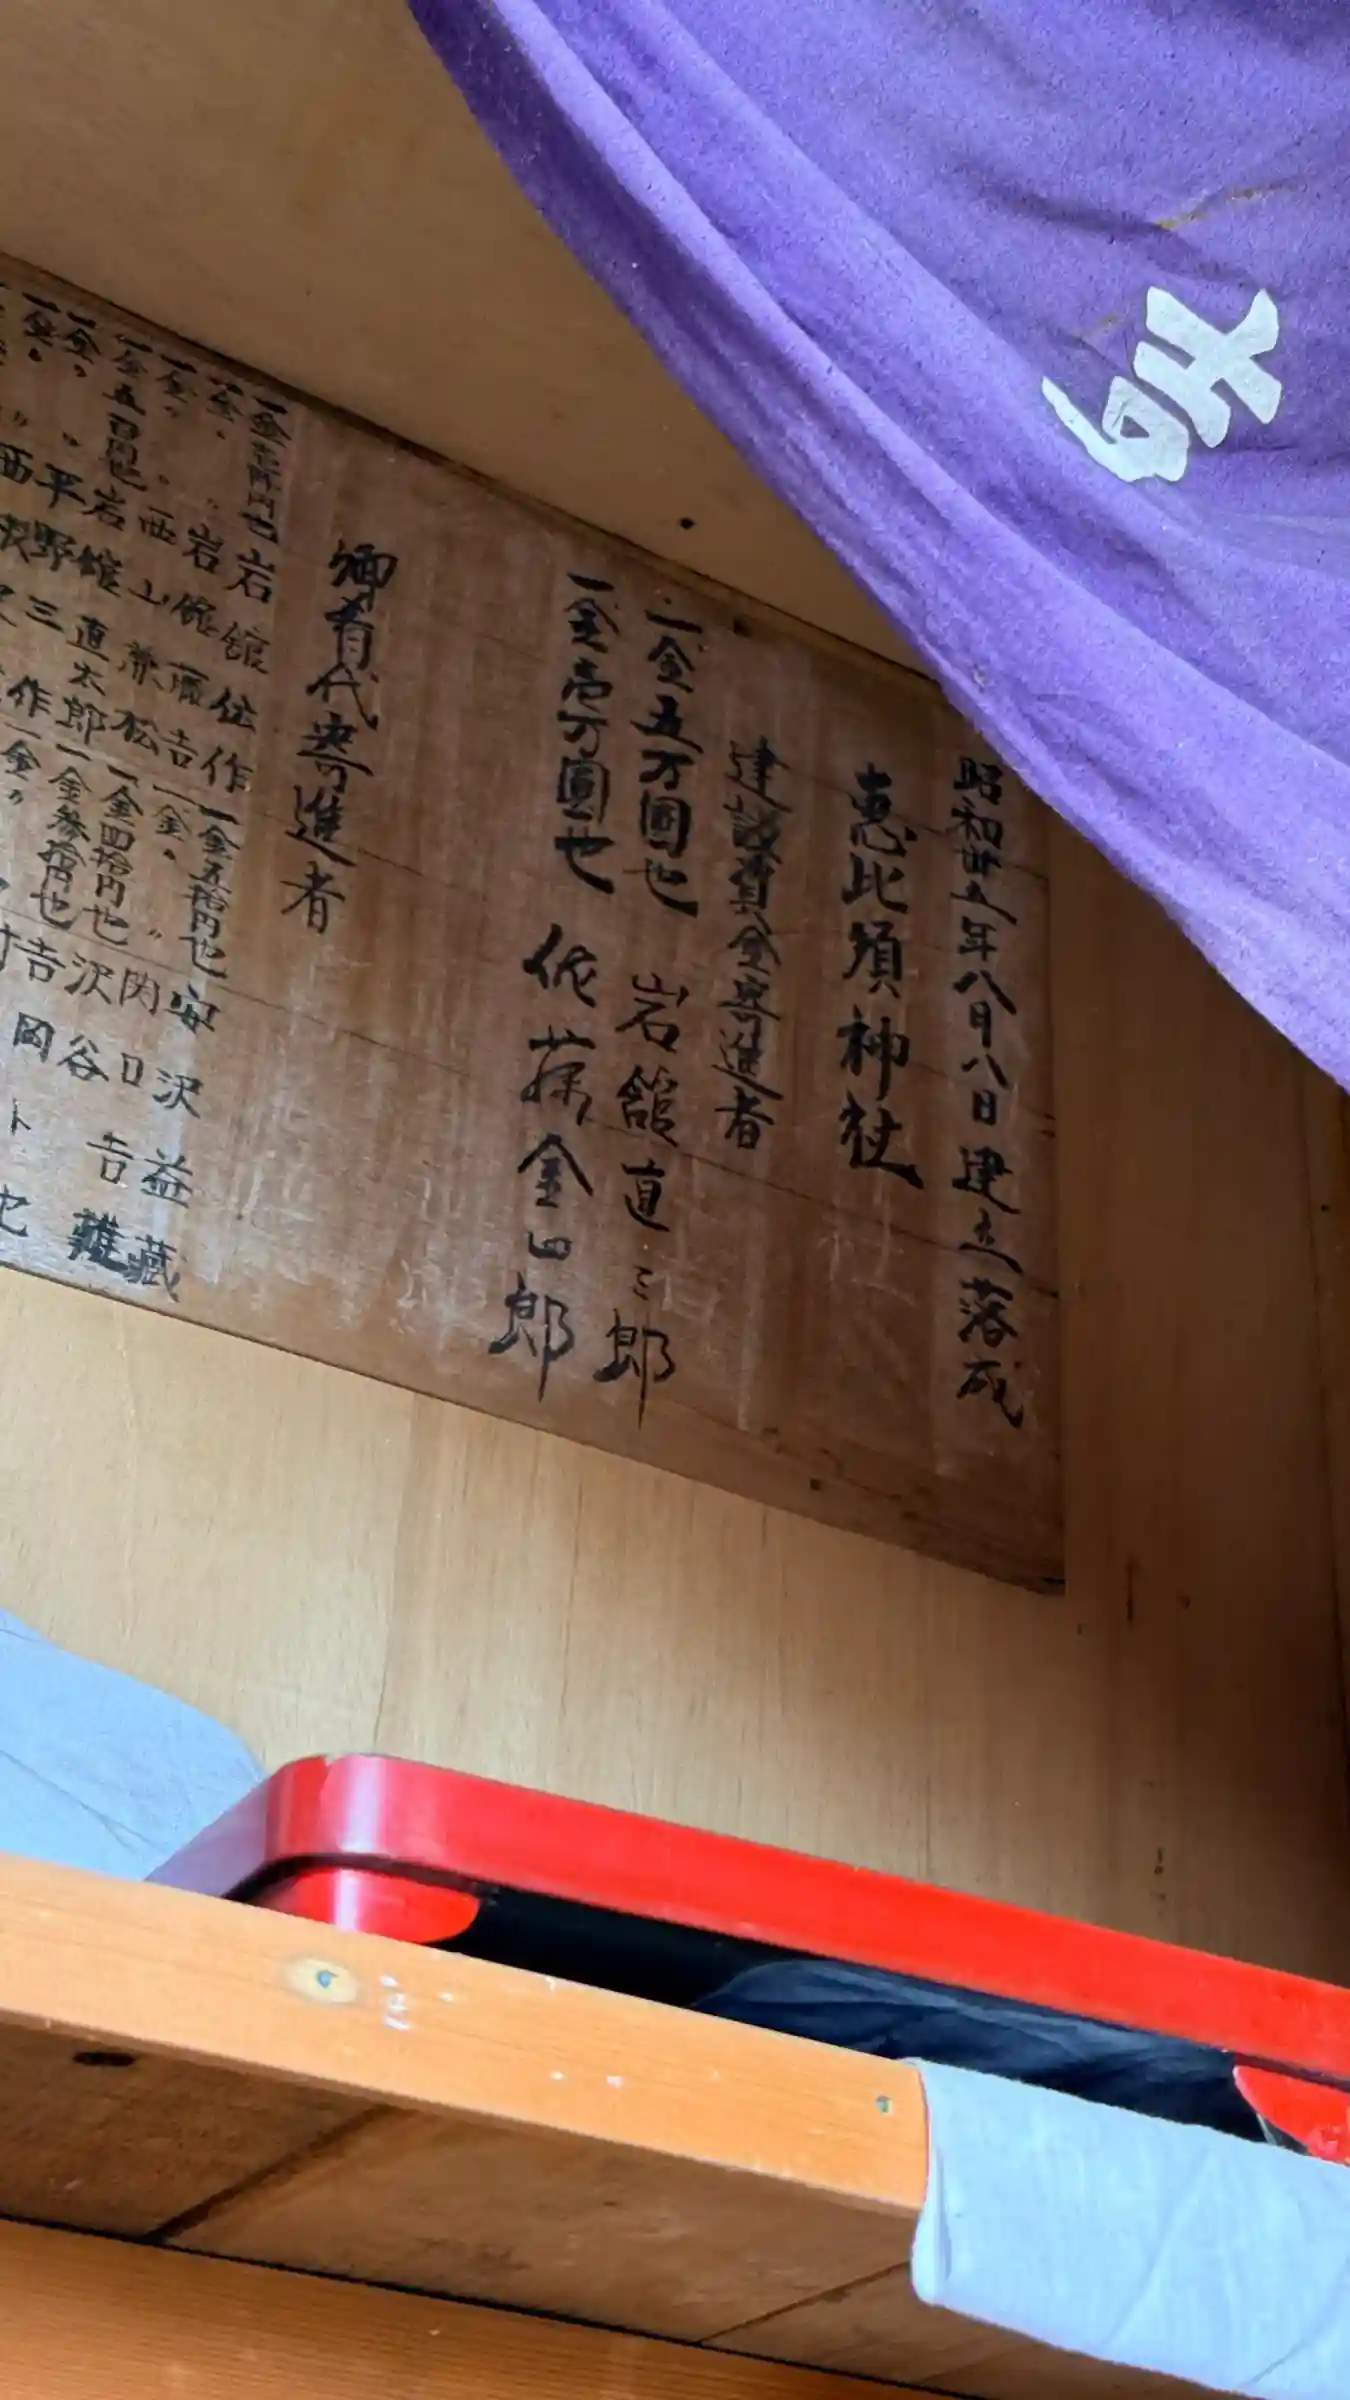 昭和卅五年八月八日建立落成
恵比須神社
建設資金寄進者
一金五万圓也 岩舘直三郎
一金壱万圓也 佐藤金四郎
御肴代寄進者
一金壱阡円也 岩舘佐作
一金〃 〃 岩舘酉吉
一金〃 〃 西山兼松
一金五百円也 岩舘直太郎
一金〃 〃 平野三作
一金五拾円也 安沢益蔵
一金〃 〃 関口
一金四拾円也 沢谷吉雄
一金参拾円也 吉岡
奉